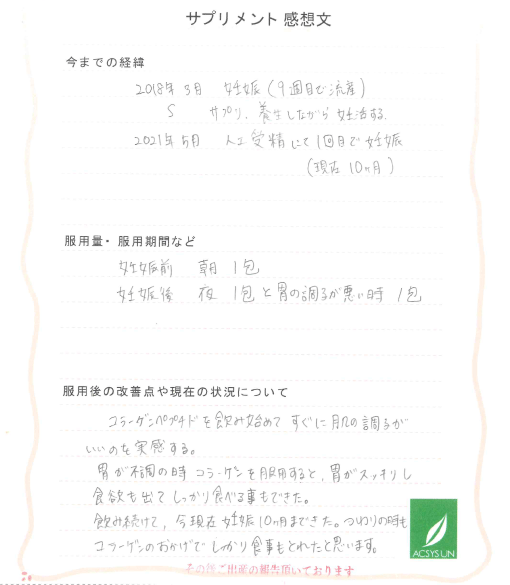 サプリメント 感想文
今までの経緯
2018年 3月 妊娠(9週目で流産)
S サプリ、養生しながら 妊活する。
2021年5月 人工受精にて1回目で妊娠
(現在 10ヶ月)
服用量・服用期間など
妊娠前 朝 1包
妊娠後 夜 1包と胃の調子が悪い時 1包
服用後の改善点や現在の状況について
コラーゲンペプチドを飲み始めて すぐに 肌の調子が
いいのを実感する。
胃が不調の時 コラーゲンを服用すると、胃がスッキリし
食欲も出て しっかり食べる事もできた。
飲み続けて、今現在 妊娠10ヶ月まできた。つわりの時も
コラーゲンのおかげで しっかり食事もとれたと思います。
ACSYS LIN
その後ご出産の報告頂いております